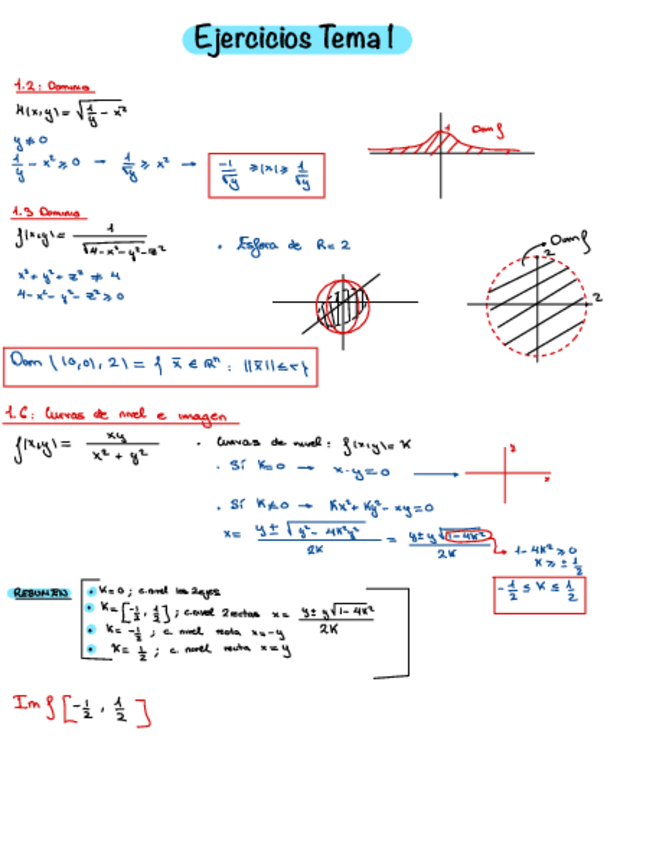 Ejercicios Tema 1
1.2: Dominio
H(x,y) = √(1/y - x²)
y ≠ 0
1/y - x² ≥ 0 → 1/√y ≥ x² → -1/√y ≥ |x| ≥ 1/√y
1 Dom f
1.3 Dominio
f(x,y) = 1/√(4-x²-y²-z²) · Esfera de R=2
x² + y² + z² ≠ 4
4-x²-y²-z² ≥ 0
Dom f
2
2
Dom ((0,0), 2) = { x̄ ∈ ℝⁿ : ||x̄|| ≤ r}
1.6: Curvas de nivel e imagen
f(x,y) = xy/(x² + y²) · Curvas de nivel: f(x,y) = K
· Sí K=0 → x·y=0 →
y
x
· Sí K≠0 → Kx² + Ky² - xy = 0
x = (y ± √(y² - 4K²y²))/2K = (y ± y√(1-4K²))/2K → 1-4K² ≥ 0
K ≥ ± 1/2
-1/2 ≤ K ≤ 1/2
RESUMEN
• K=0 ; c.nivel los 2 ejes
• K = [-1/2, 1/2] ; c.nivel 2 rectas x = (y ± y√(1-4K²))/2K
• K = -1/2 ; c. nivel recta x=-y
• K = 1/2 ; c. nivel recta x=y
Im f [-1/2, 1/2]